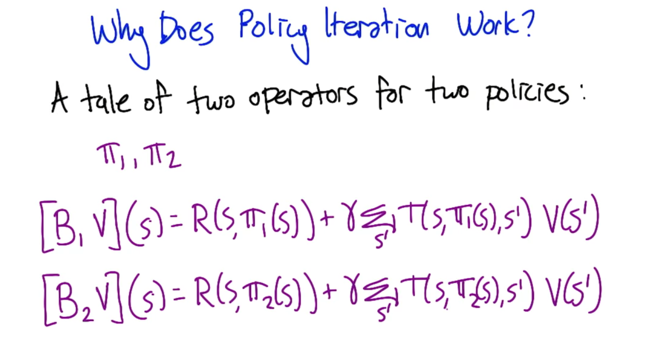 Why Does Policy Iteration Work?
A tale of two operators for two policies:
π₁, π₂
[B₁ V](s) = R(s, π₁(s)) + γ Σ_s' T(s, π₁(s), s') V(s')
[B₂ V](s) = R(s, π₂(s)) + γ Σ_s' T(s, π₂(s), s') V(s')